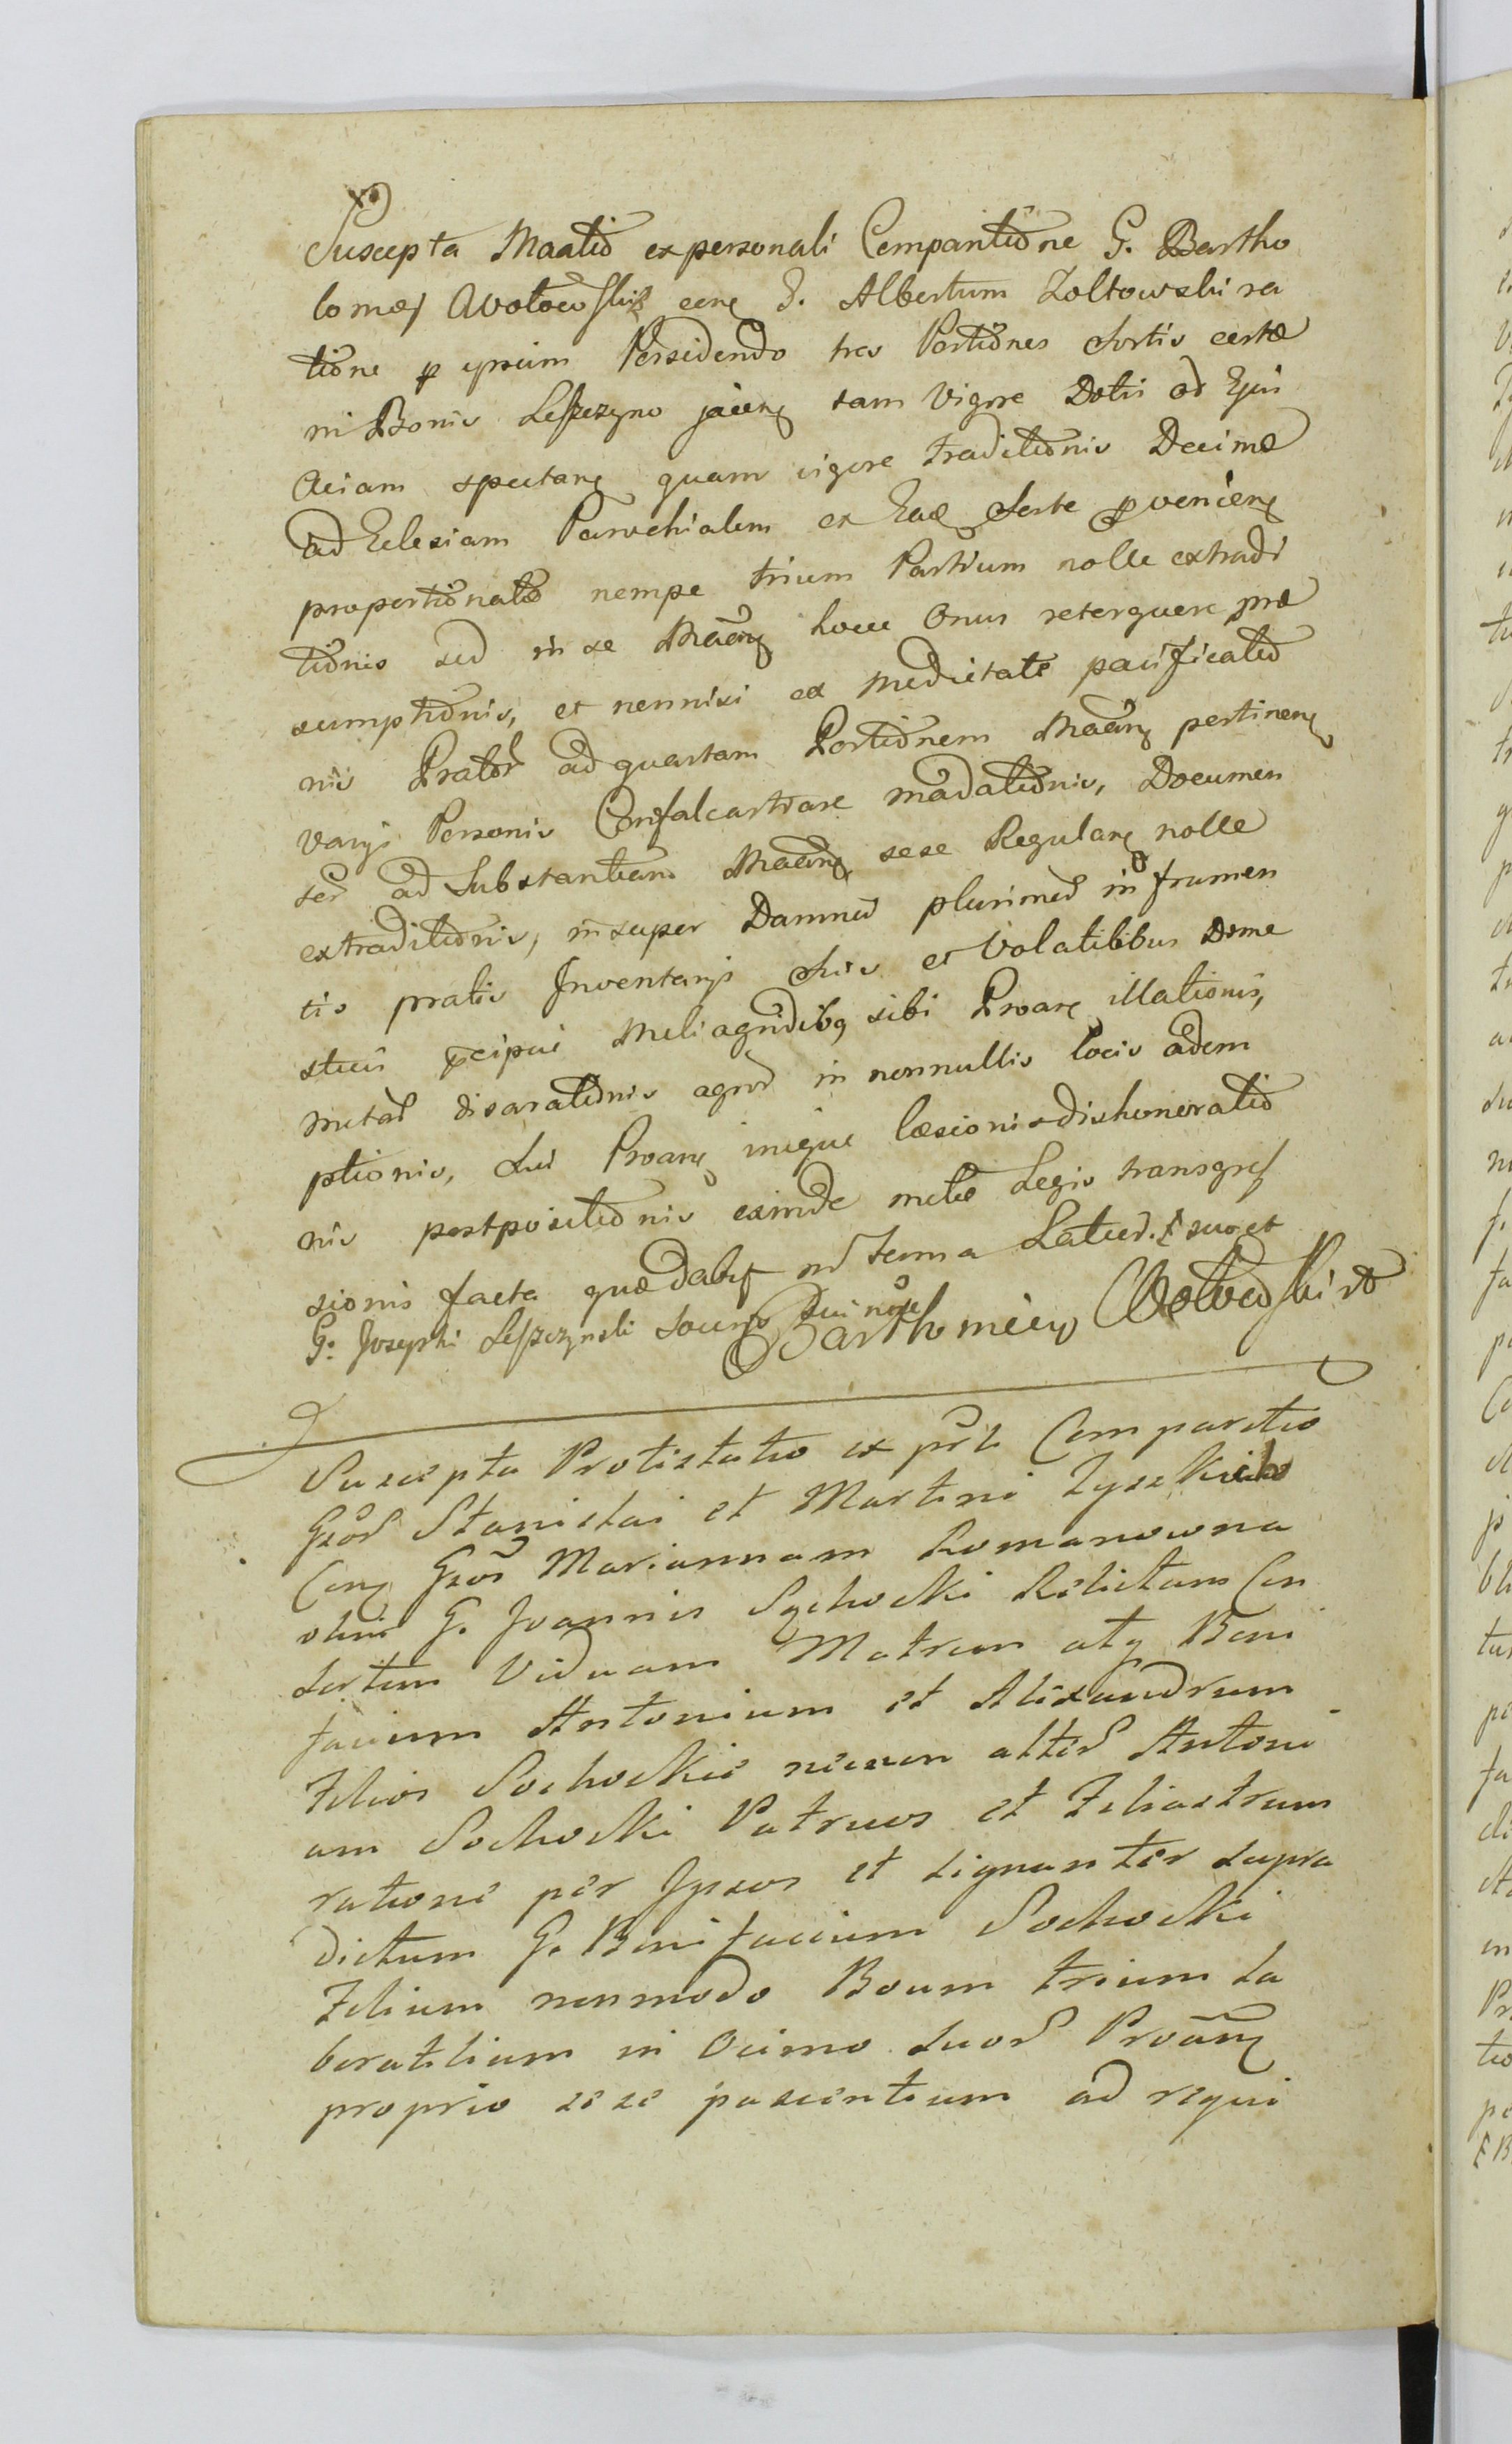 Suscepta Maatio ex personali Compantione G. Bartho
lomæj Wołowski cong G. Albertum Zoltowski ra
tione p ipsum Possidendo tres Portiones Sortis certæ
in Bonis Leszczyno jaceng tam Vigore Dotis ad Ejus
Aciam spectang quam vigore traditionis Decimæ
ad Eclesiam Parochialem ex Eadg Sorte pvenieng
proportionatæ nempe trium Partium nolle extradi
tionis sed in se Maang hocce Onus retorquere præ
sumptionis, et nonnisi ex medietate pacificatio
nis Prator ad quartam Portionem Maang pertineng
varijs Personis Confalcastrare madationis, Documen
tor ad Substantiam Maang sese Regulang nolle
extraditionis, insuper Damnor plurimor in frumen
tis pratis Inventarijs Suis et Volatilibus Dome
sticis pcipue Meliagridibg sibi Proang illationis,
metar disarationis agror in nonnullis locis adem
ptionis, Sui Proang inique læsionis dishonoratio
nis postpositionis eximde metæ Legis transgres
sionis facta quæ dabit in termino Latior. E suo et
G: Josephi Leszczynski Soceri Sui noie
Bartłomiey Wołowski

Suscepta Protestatio ex psli Comparitio
Gsor Stanislai et Martini Zyszkich
Cong Gsos Mariannam Romanowna
olim G. Joannis Sychocki Relictam Con
sortem Viduam Matrem atq Boni
facium Antonium et Alexandrum
Filios Sochockie necnon alter Antoni
um Sochocki Patruos et Filiastrum
ratione per Ipsos et signanter supra
dictum G. Bonifacium Sochocki
Filium nonmodo Boum trium la
boratilium in Ocimo Suor Proang
proprio sese pascentium ad requi